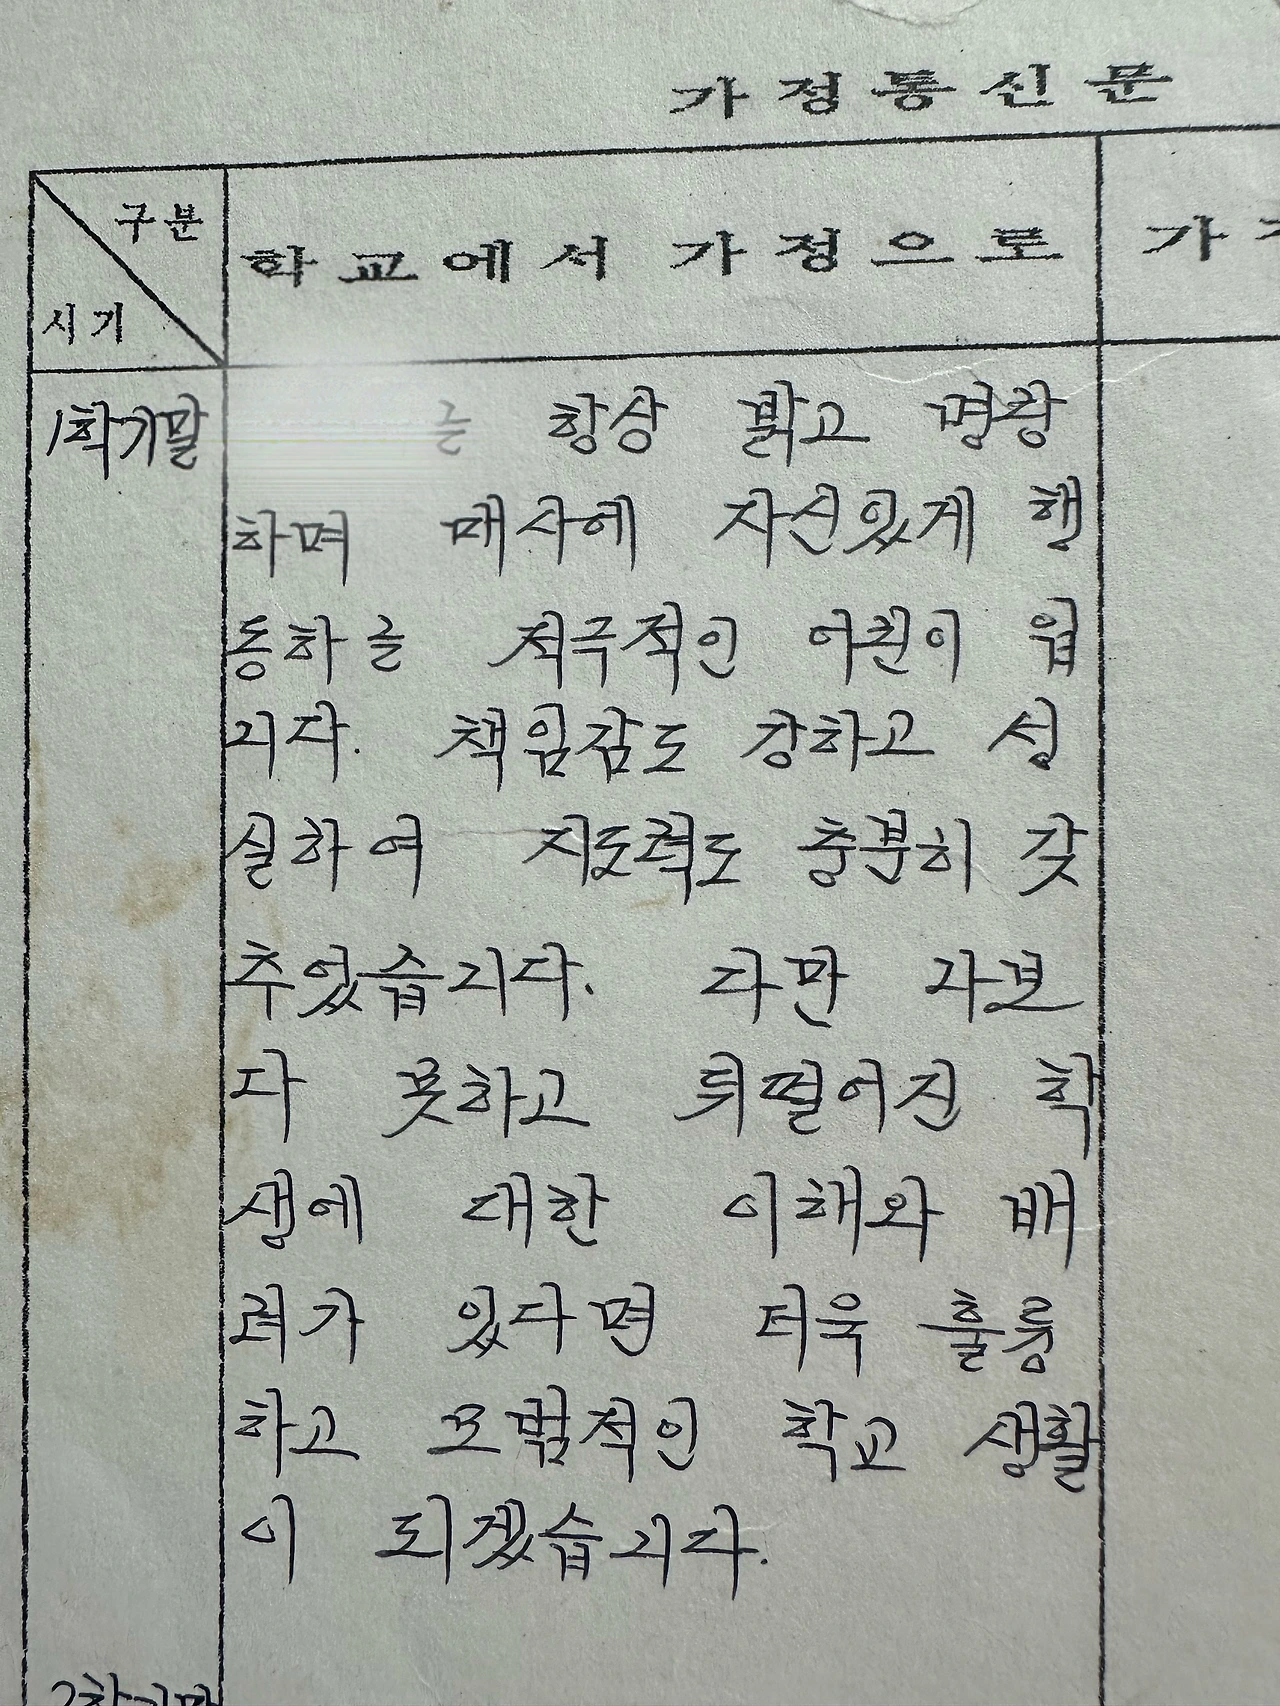 가정통신문
구분
시기
학교에서 가정으로
1학기말
는 항상 밝고 명랑
하며 매사에 자신있게 행
동하는 적극적인 어린이 입
니다. 책임감도 강하고 성
실하여 지도력도 충분히 갖
추었습니다. 다만 나보
다 못하고 뒤떨어진 학
생에 대한 이해와 배
려가 있다면 더욱 훌륭
하고 모범적인 학교 생활
이 되겠습니다.
2학기말